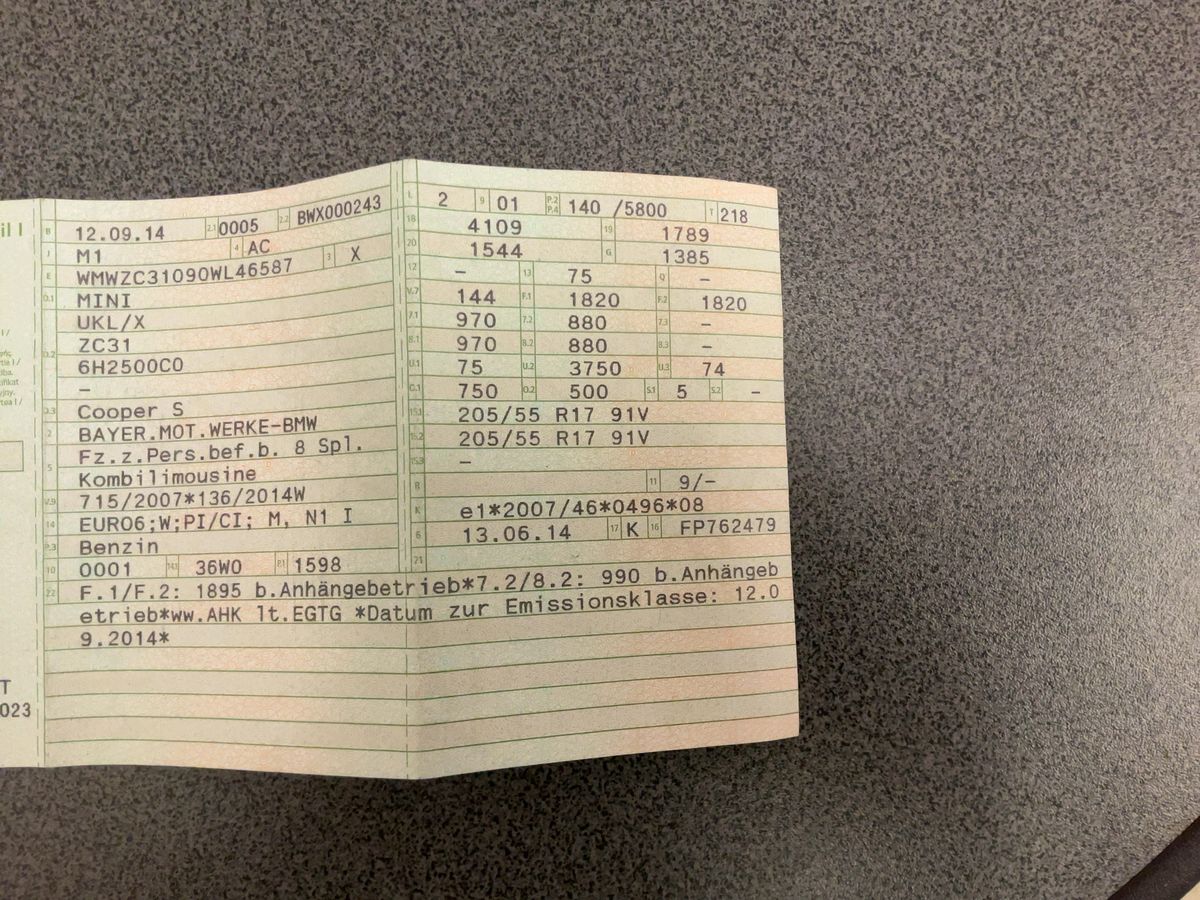 il I
B 12.09.14 2.1 0005 2.2 BWX000243
J M1 4 AC
E WMWZC31090WL46587 3 X
D.1 MINI
UKL/X
D.2 ZC31
6H2500C0
–
D.3 Cooper S
2 BAYER.MOT.WERKE-BMW
5 Fz.z.Pers.bef.b. 8 Spl.
Kombilimousine
V.9 715/2007*136/2014W
14 EURO6;W;PI/CI; M, N1 I
P.3 Benzin
10 0001 14.1 36W0 P.1 1598
L 2 9 01 P.2 P.4 140 /5800 T 218
18 4109 19 1789
20 1544 G 1385
12 – 13 75 Q –
V.7 144 F.1 1820 F.2 1820
7.1 970 7.2 880 7.3 –
8.1 970 8.2 880 8.3 –
U.1 75 U.2 3750 U.3 74
O.1 750 O.2 500 S.1 5 S.2 –
15.1 205/55 R17 91V
15.2 205/55 R17 91V
15.3 –
R 11 9/–
K e1*2007/46*0496*08
6 13.06.14 17 K 16 FP762479
21
22 F.1/F.2: 1895 b.Anhängebetrieb*7.2/8.2: 990 b.Anhängeb
etrieb*ww.AHK lt.EGTG *Datum zur Emissionsklasse: 12.0
9.2014*
T
023